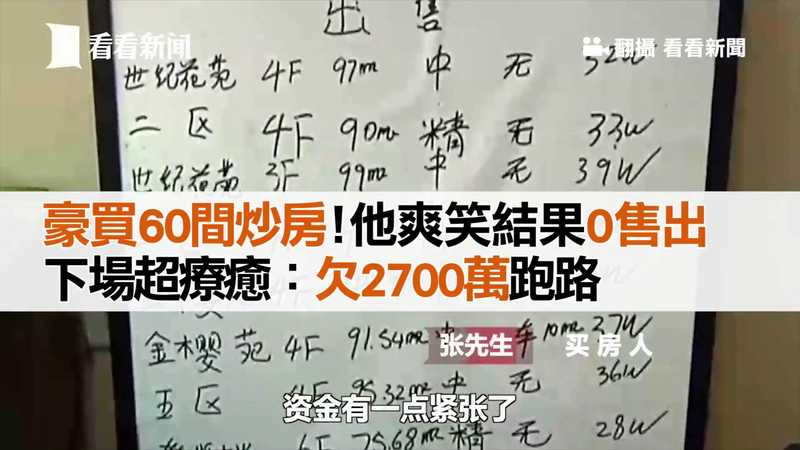 看看新闻
翻攝 看看新聞
出售
世纪花苑 4F 97m 中 无 32W
二区 4F 90m 精 无 33W
世纪花苑 3F 99m 中 无 39W
豪買60間炒房!他爽笑結果0售出
下場超療癒:欠2700萬跑路
金樱苑 4F 91.54m 中 车10m 27W
张先生 买房人
五区 4F 95.32m 中 无 36W
资金有一点紧张了
6F 75.68m 精 无 28W